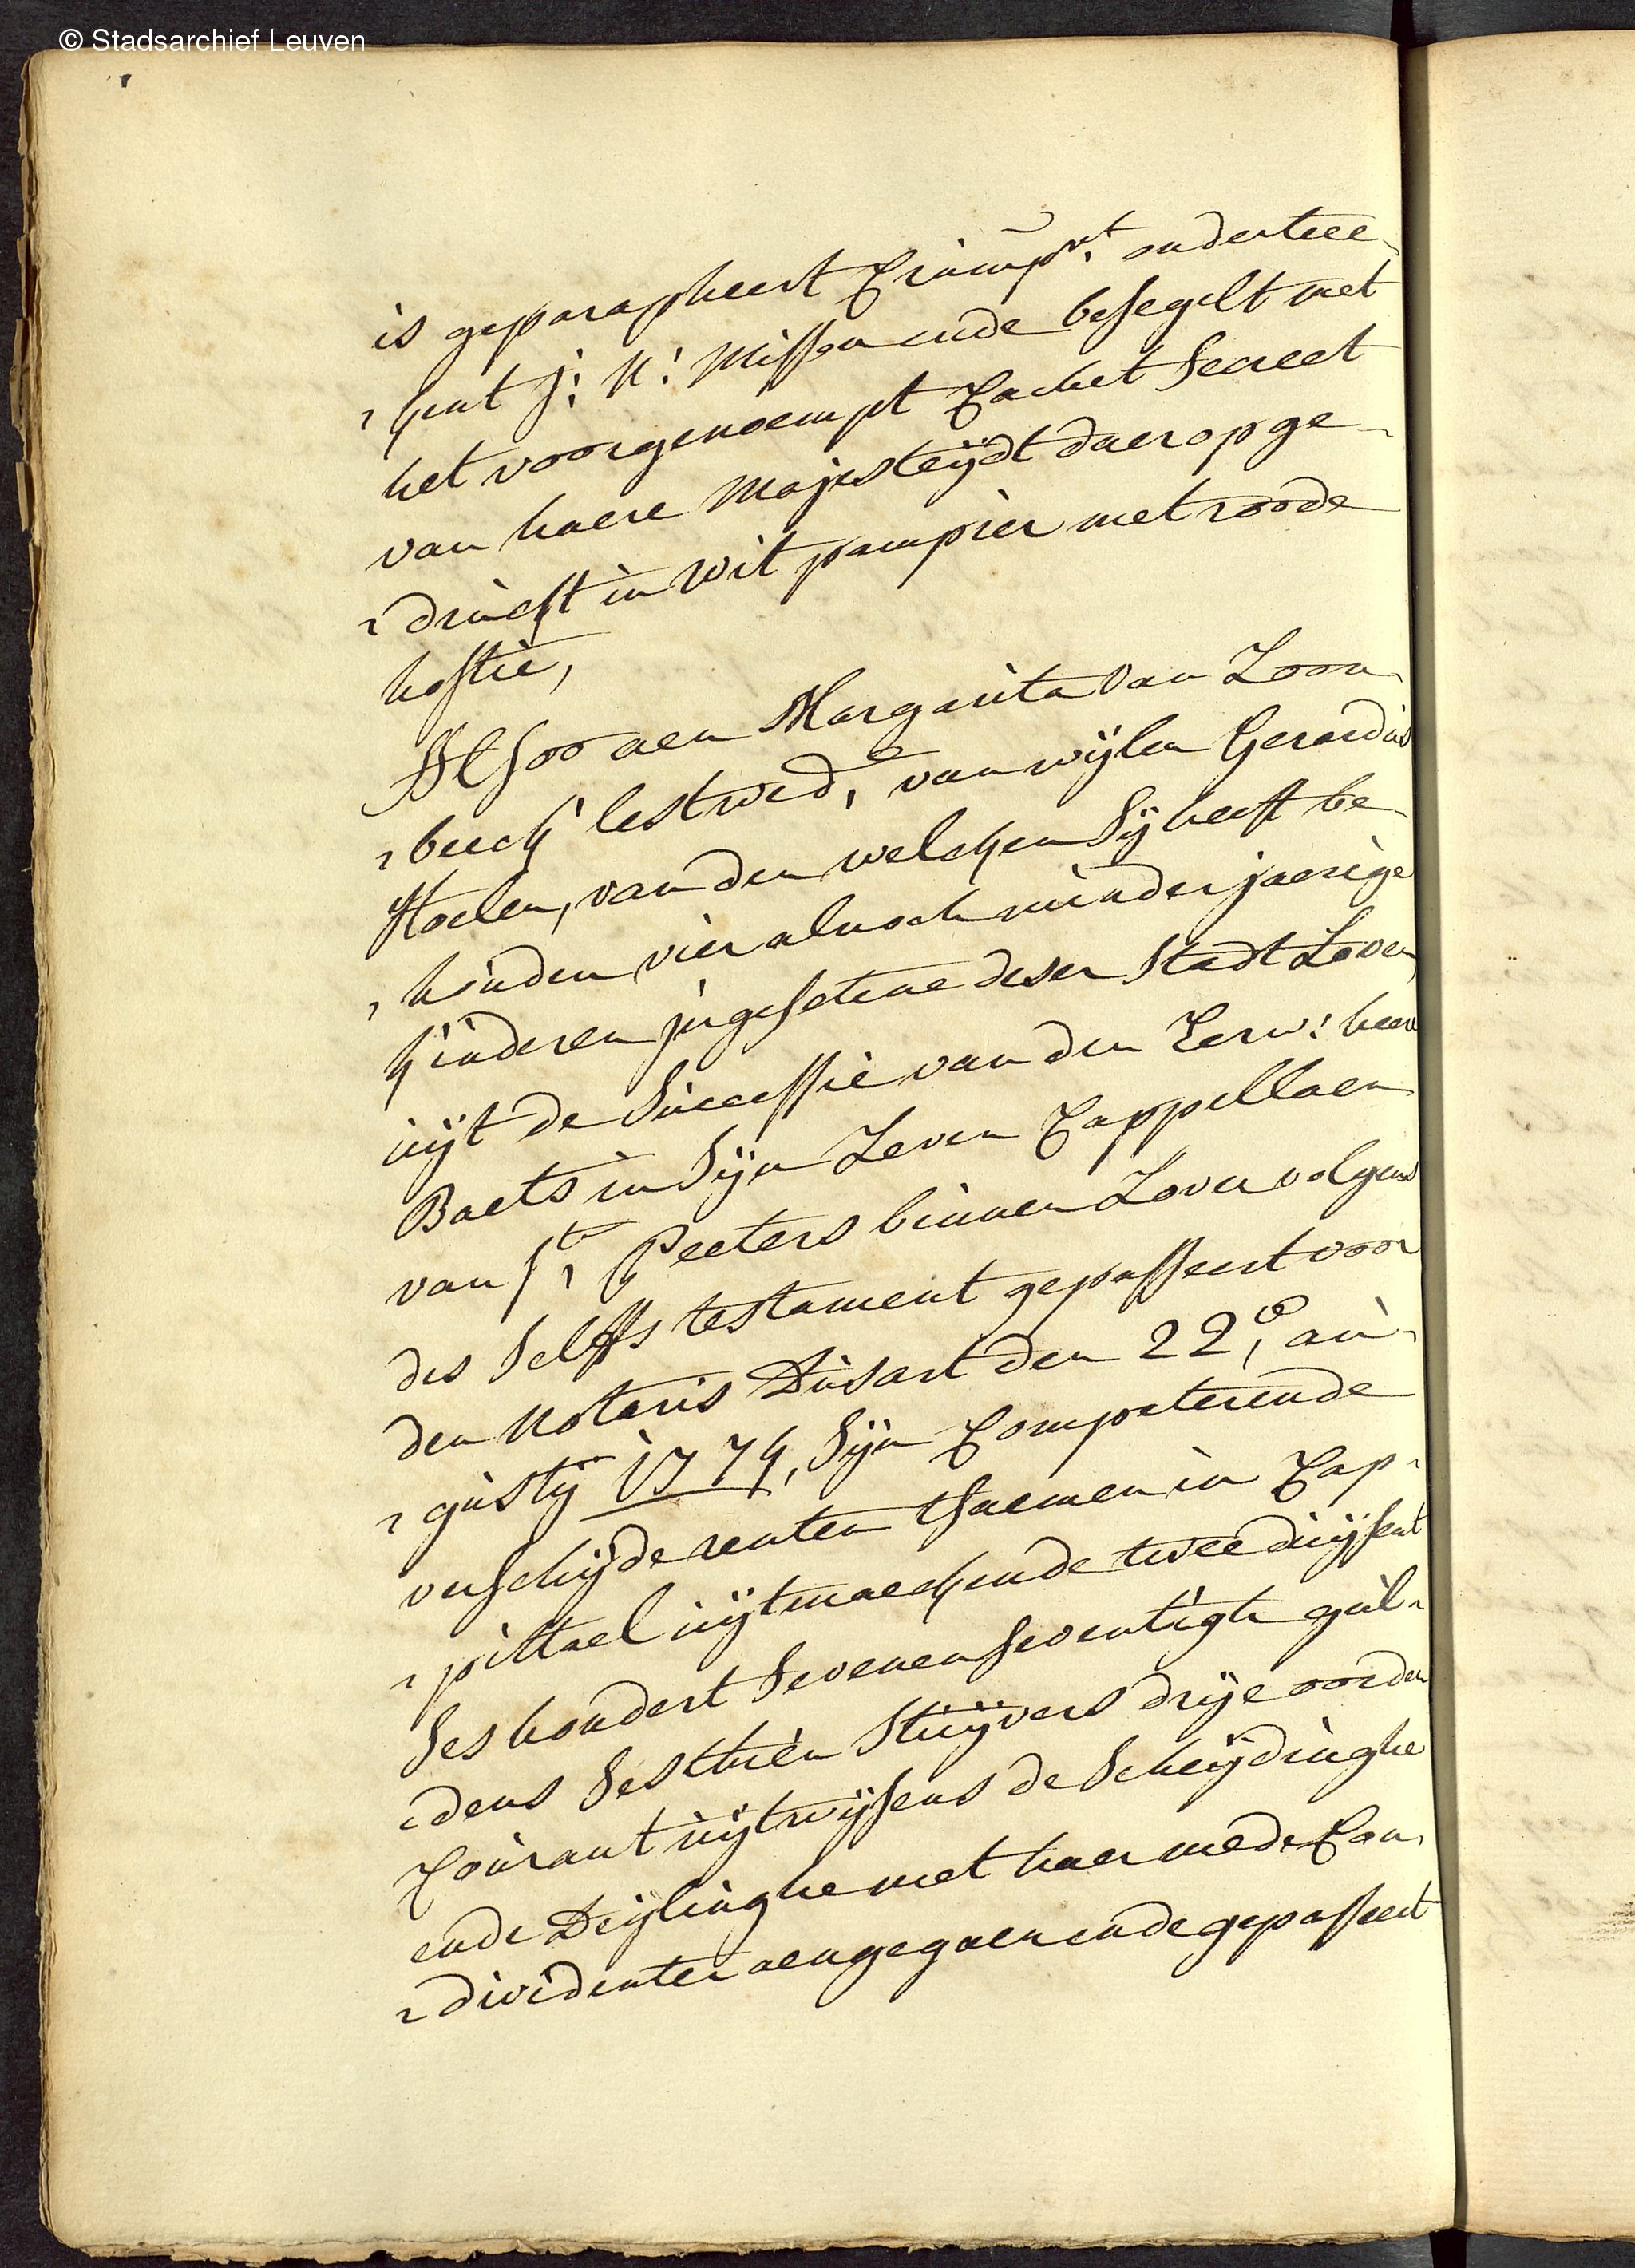 © Stadsarchief Leuven
is geparapheert Crumpt. onderteee-
-kent j: N: Misson ende besegelt met
het voorgenoempt Cachet Secreet
van haere Majesteÿdt daerop ge-
-druckt in wit pampier met roode
hostie,
Alsoo aen Margarita van Loon-
-beeck lest wede. van wijlen Gerardus
Hoelen, van den welcken sij heeft be-
-houden vier alnoch minderjaerige
kinderen jngesetene deser Stadt Loven,
uijt de Successie van den Eerw: heere
Baets in sijn Leven Cappellaen
van St. Peeters binnen Loven volgens
des selffs testament gepasseert voor
den Notaris Dusart den 22e. au-
-gustij 1774, sijn Competerende
verscheijde renten t'saemen in Cap-
-pittael uijtmaeckende twee duijsent
ses hondert sevenensseventigh gul-
-dens sesthien stuijvers drije oorden
Courant uijtwijsens de Scheijdinghe
ende Deijlinghe met haer mede Con-
-dividenten aengegaen ende gepasseert